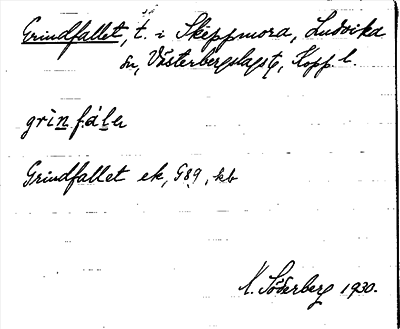 Grindfallet, t. i Skeppmora, Ludvika
sn, Västerbergslags tg, Kopp. l.
grìn fáler
Grindfallet ek, G89, kb
N. Söderberg 1930.